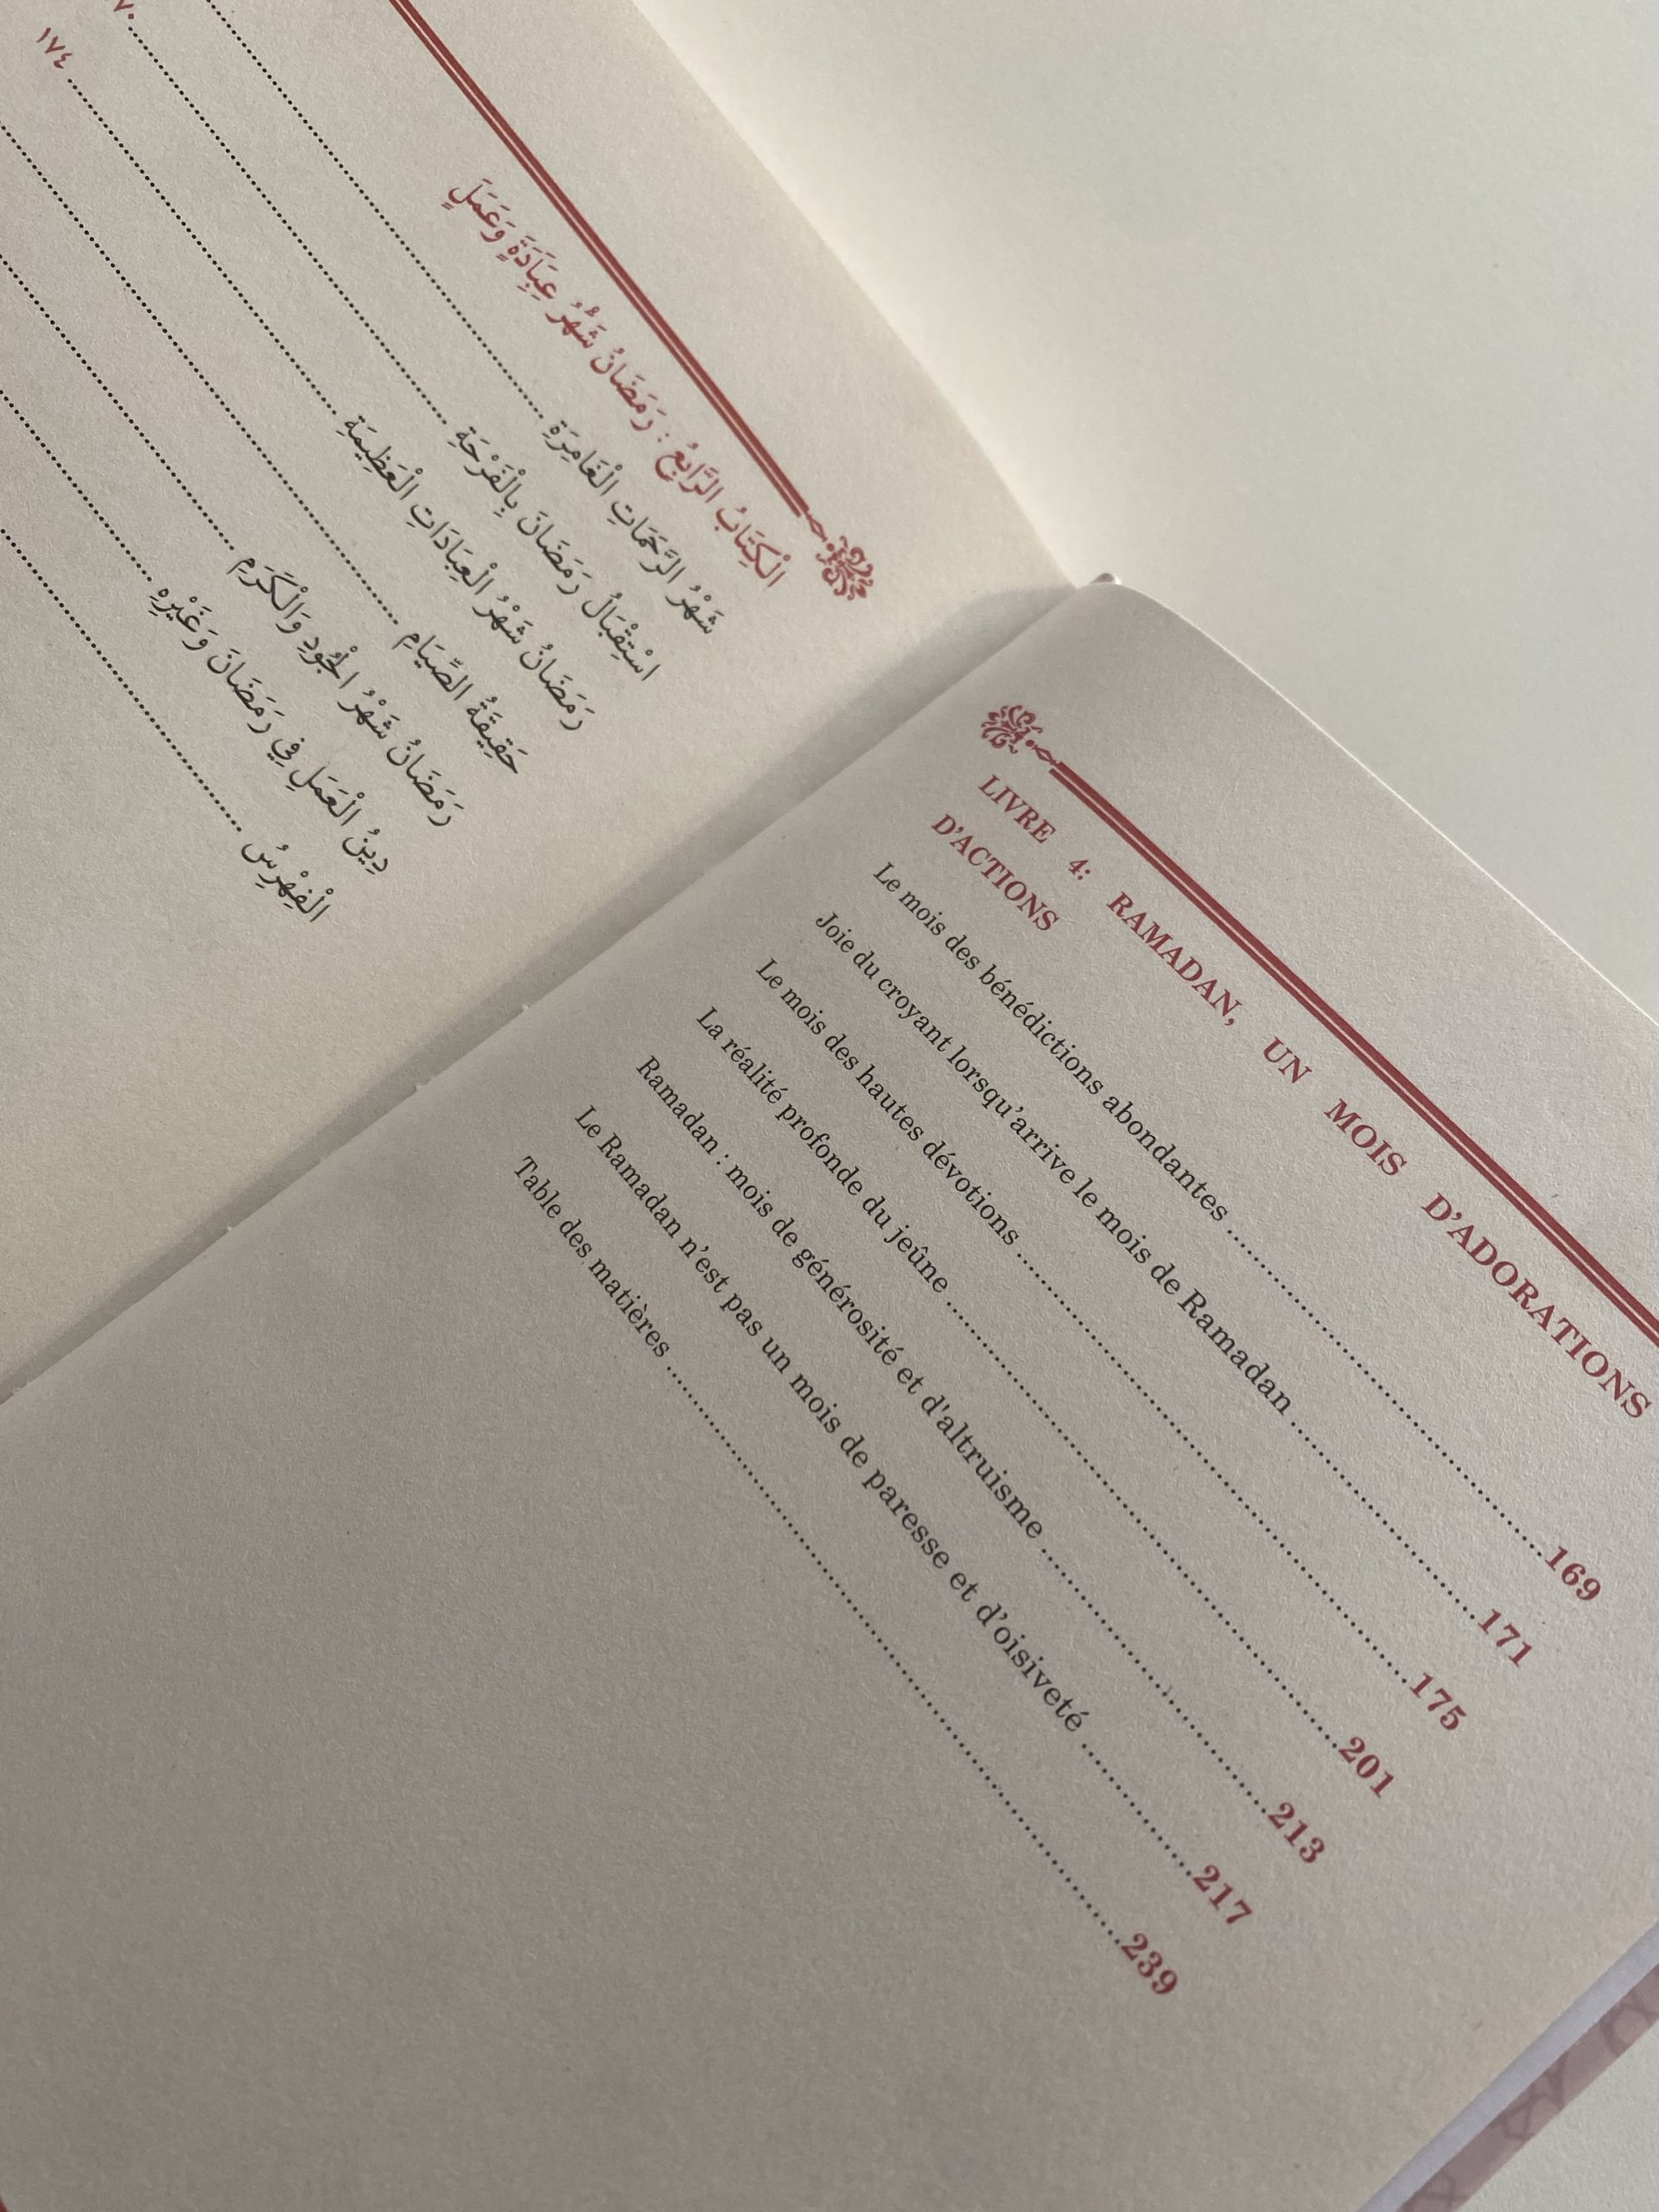 الْكِتَابُ الرَّابِعُ : رَمَضَانُ شَهْرُ عِبَادَةٍ وَعَمَلٍ
شَهْرُ الرَّحَمَاتِ الْغَامِرَةِ
اسْتِقْبَالُ رَمَضَانَ بِالْفَرْحَةِ
رَمَضَانُ شَهْرُ الْعِبَادَاتِ الْعَظِيمَةِ ١٧٤
حَقِيقَةُ الصِّيَامِ
رَمَضَانُ شَهْرُ الْجُودِ وَالْكَرَمِ
دِينُ الْعَمَلِ فِي رَمَضَانَ وَغَيْرِهِ
الْفِهْرِسُ
LIVRE 4: RAMADAN, UN MOIS D’ADORATIONS
D’ACTIONS
Le mois des bénédictions abondantes 169
Joie du croyant lorsqu’arrive le mois de Ramadan 171
Le mois des hautes dévotions 175
La réalité profonde du jeûne 201
Ramadan : mois de générosité et d'altruisme 213
Le Ramadan n’est pas un mois de paresse et d’oisiveté 217
Table des matières 239